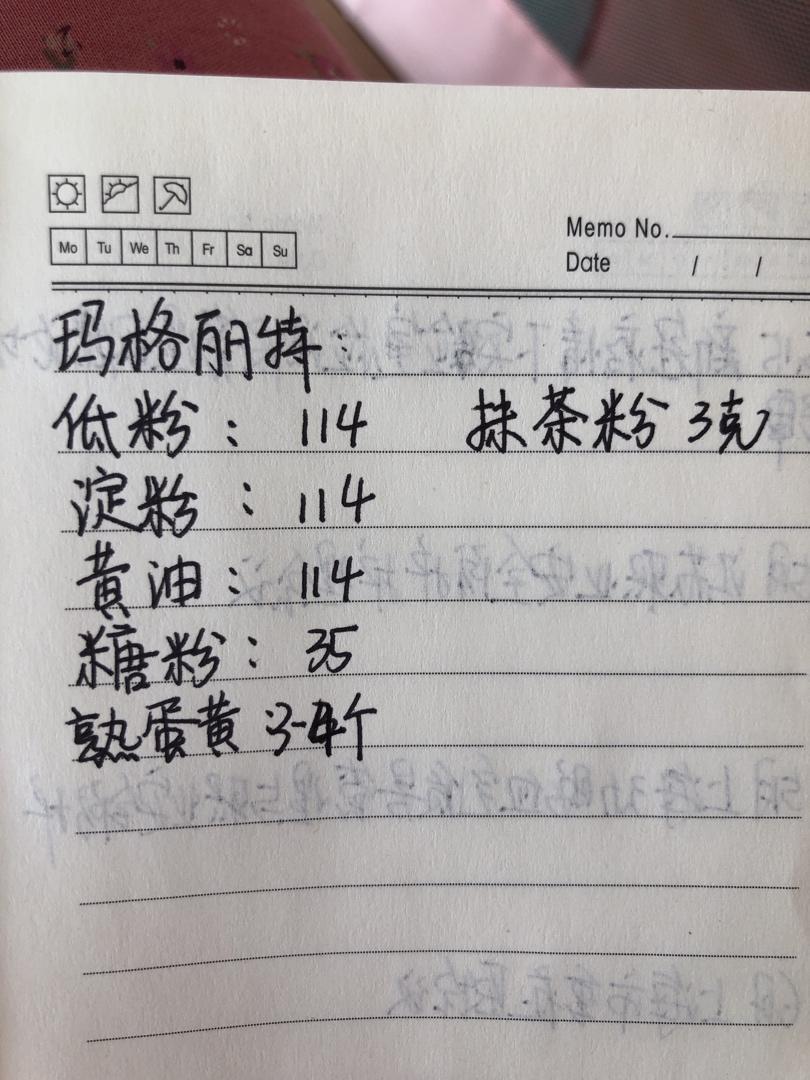 Mo Tu We Th Fr Sa Su
Memo No.
Date / /
玛格丽特:
低粉: 114 抹茶粉 3克
淀粉: 114
黄油: 114
糖粉: 35
熟蛋黄 3-4个